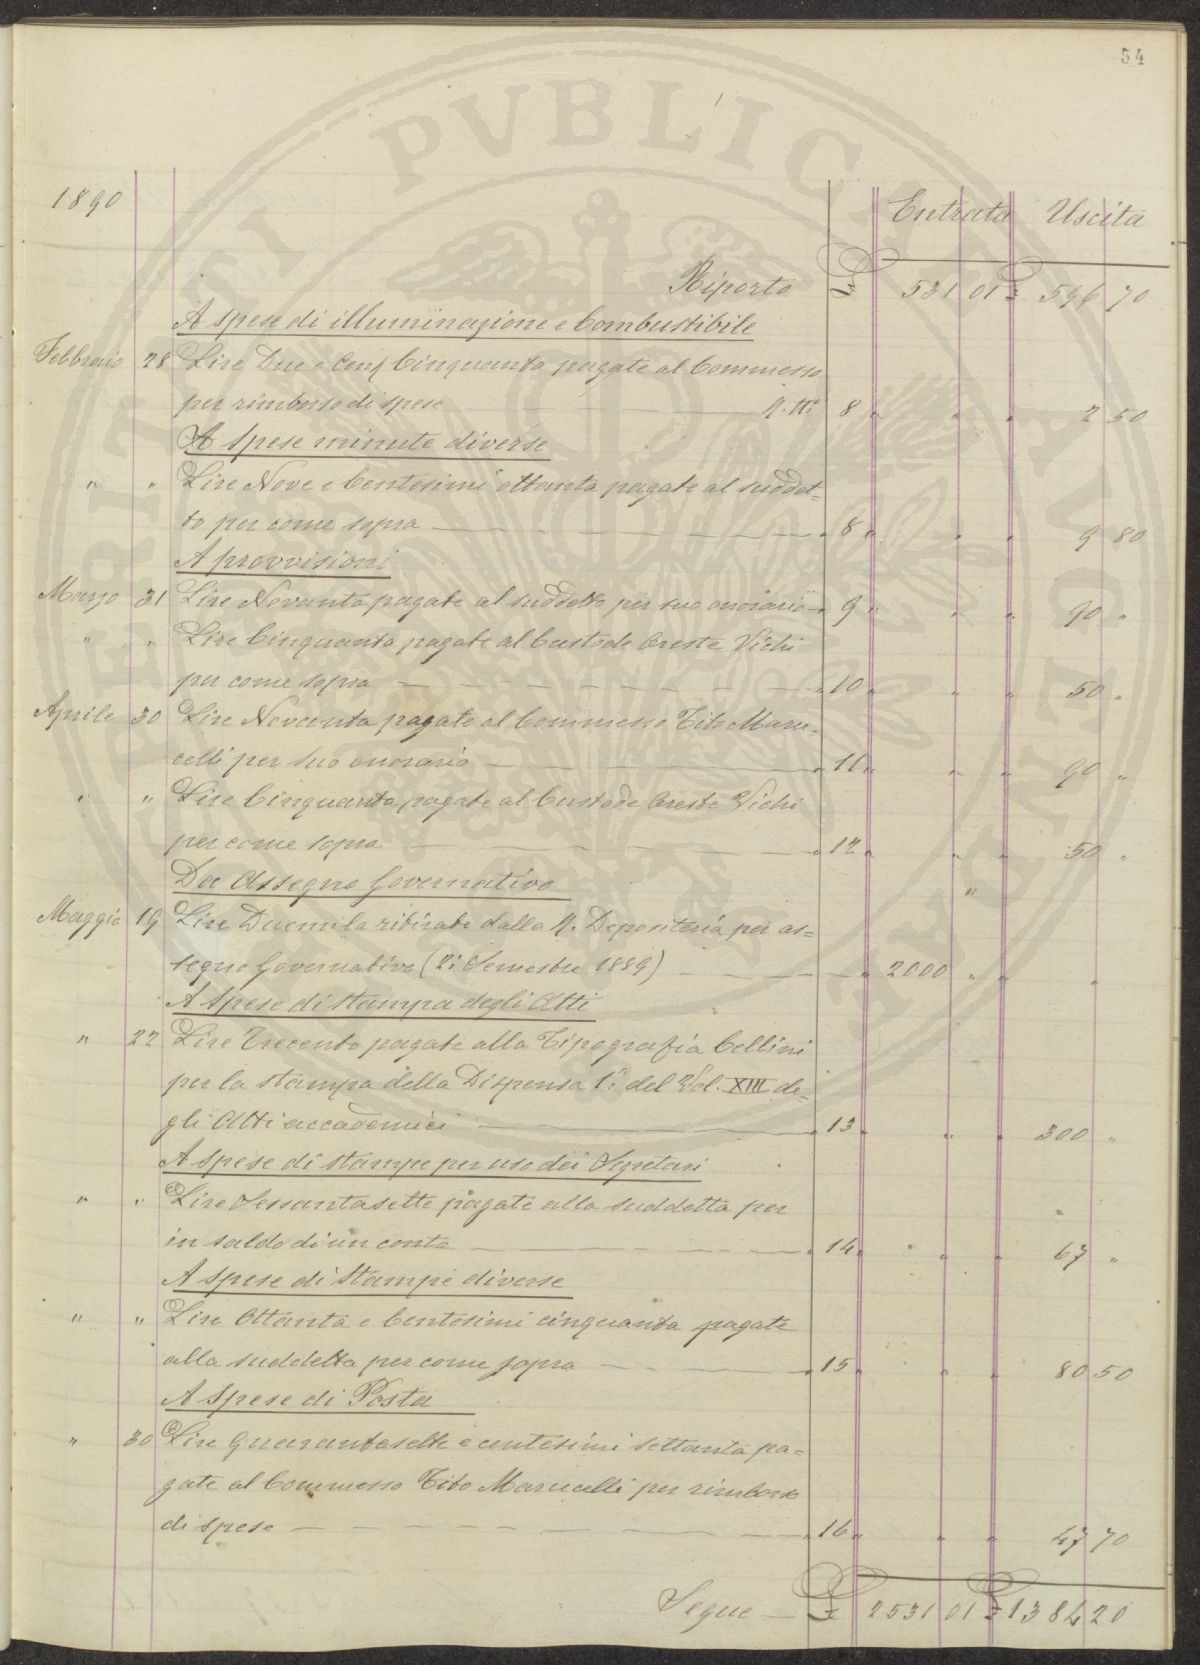 54
1890
Entrata Uscita
Riporto £ 531 01 £ 596 70
A spese di illuminazione e Combustibile
Febbraio 28 Lire Due e Cent. Cinquanta pagate al Commesso
per rimborso di spese 8 " " " 2 50
A spese minute diverse
" " Lire Nove e Centesimi ottanta pagate al suddet=
to per come sopra — " 8 " " " 9 80
A provvisioni
Marzo 31 Lire Novanta pagate al suddetto per suo onorario — " 9 " " " 90 "
" " Lire Cinquanta pagate al Custode Oreste Vichi
per come sopra — " 10 " " " 50 "
Aprile 30 Lire Novanta pagate al Commesso Tito Maru=
celli per suo onorario — " 11 " " " 90 "
" " Lire Cinquanta pagate al Custode Oreste Vichi
per come sopra — " 12 " " " 50 "
Da Assegno Governativo "
Maggio 19 Lire Duemila ritirate dalla R. Depositeria per as=
segno Governativo (2º Semestre 1889) — " 2000 " " "
A spese di stampa degli Atti
" 22 Lire Trecento pagate alla Tipografia Cellini
per la stampa della Dispensa 1ª del Vol. XIII de=
gli Atti accademici — " 13 " " " 300 "
A spese di stampe per uso dei Segretari
" " Lire Sessantasette pagate alla suddetta per
in saldo di un conto — " 14 " " " 67 "
A spese di stampe diverse
" " Lire Ottanta e Centesimi cinquanta pagate
alla suddetta per come sopra — " 15 " " " 80 50
A Spese di Posta
" 30 Lire Quarantasette e centesimi settanta pa=
gate al Commesso Tito Marucelli per rimborso
di spese — " 16 " " " 47 70
Segue — £ 2531 01 £ 1384 20